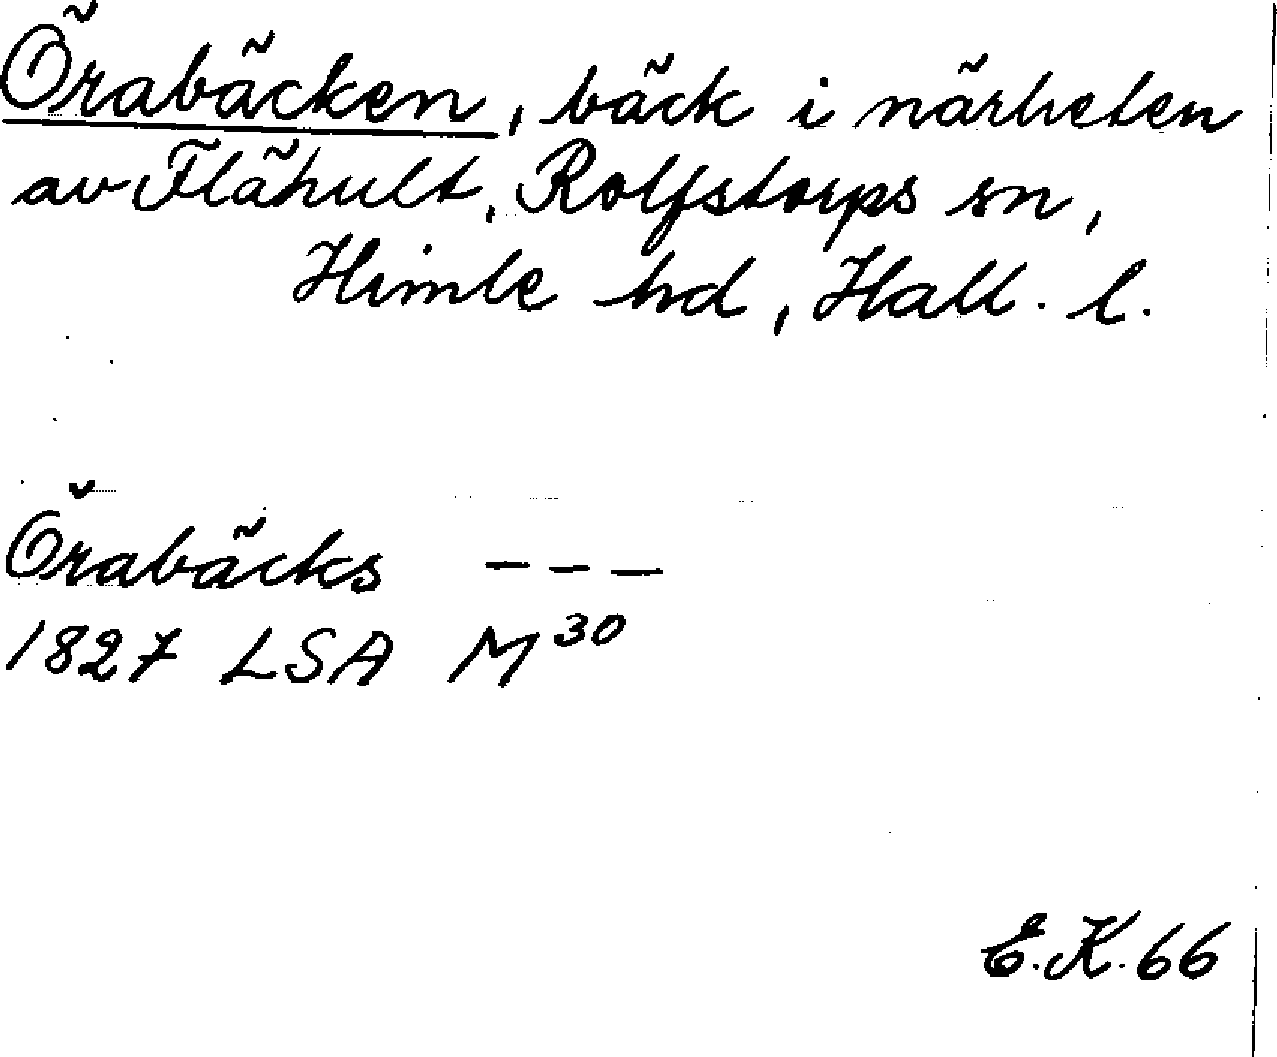 Örabäcken, bäck i närheten
av Flähult, Rolfstorps sn,
Himle hd, Hall. l.
Örabäcks - - -
1827 LSA M30
E.K. 66